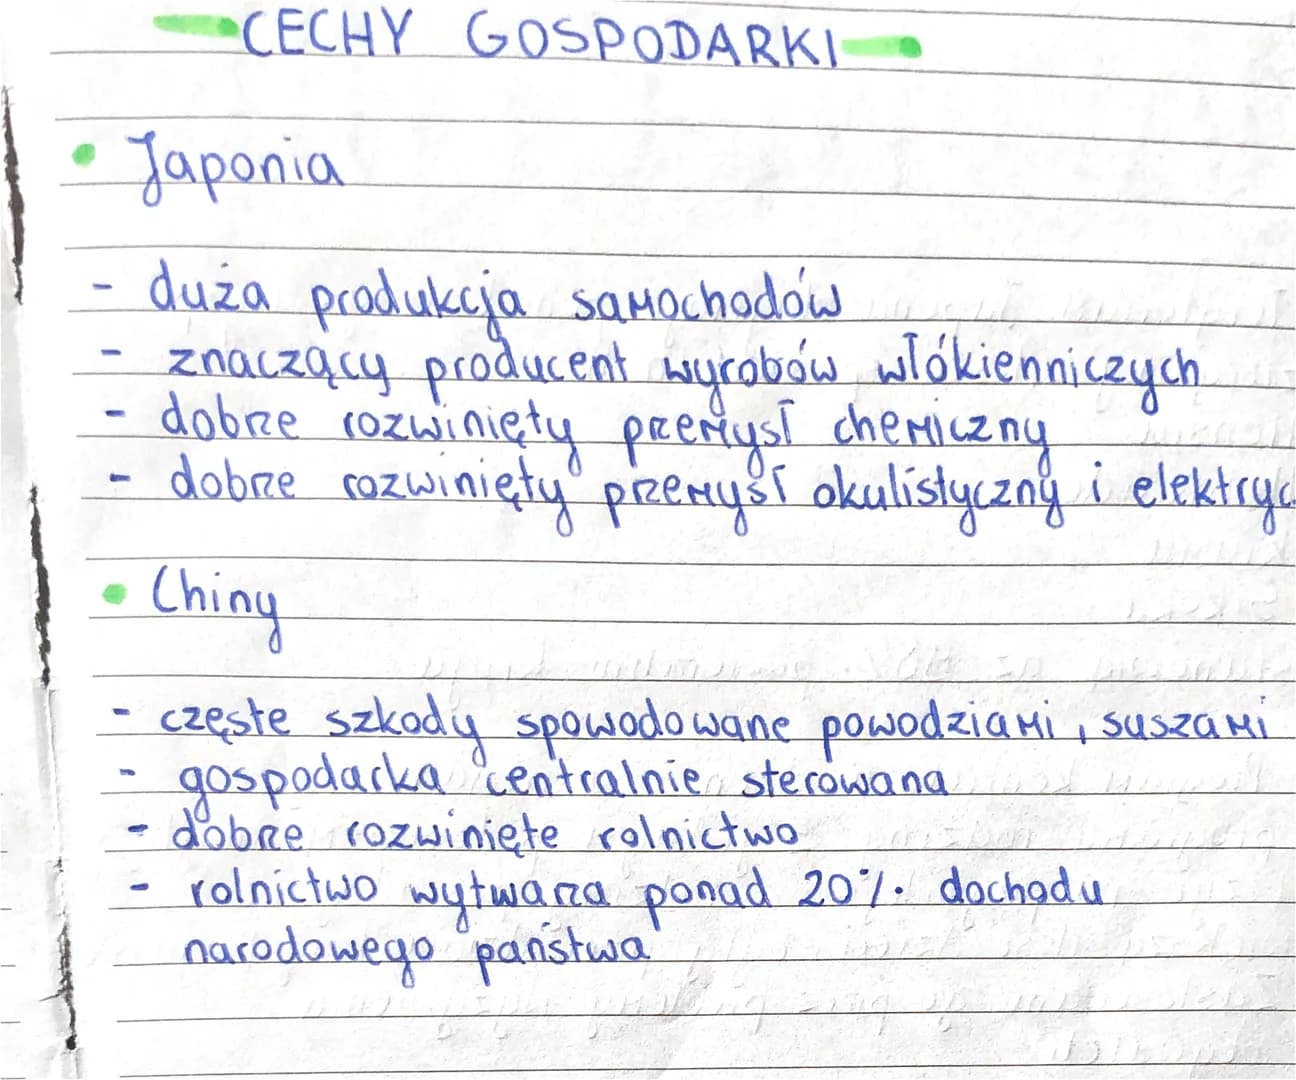 CECHY GOSPODARKI
• Japonia
- duża produkcja samochodów
- znaczący producent wyrobów włókienniczych
- dobrze rozwinięty przemysł chemiczny
- dobrze rozwinięty przemysł okulistyczny i elektryc
• Chiny
- częste szkody spowodowane powodziami, suszami
- gospodarka centralnie sterowana
- dobrze rozwinięte rolnictwo
- rolnictwo wytwarza ponad 20% dochodu
narodowego państwa